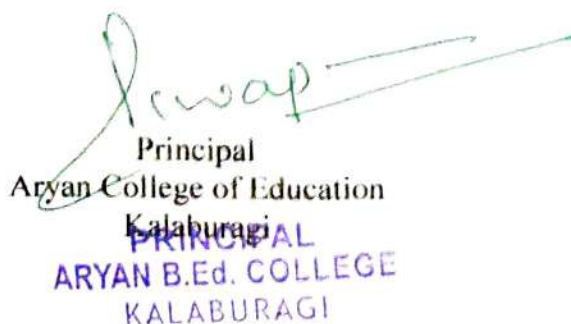 Principal
Aryan College of Education
Kalaburagi
PRINCIPAL
ARYAN B.Ed. COLLEGE
KALABURAGI